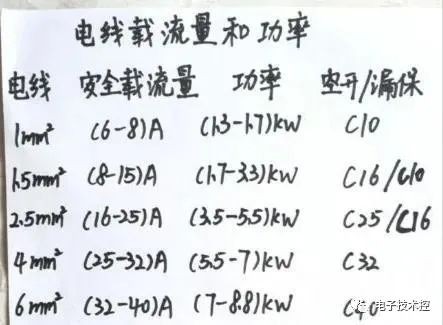 电线载流量和功率
电线 安全载流量 功率 空开/漏保
1mm² (6-8)A (1.3-1.7)kW C10
1.5mm² (8-15)A (1.7-3.3)kW C16/C10
2.5mm² (16-25)A (3.5-5.5)kW C25/C16
4mm² (25-32)A (5.5-7)kW C32
6mm² (32-40)A (7-8.8)kW C40
电子技术控